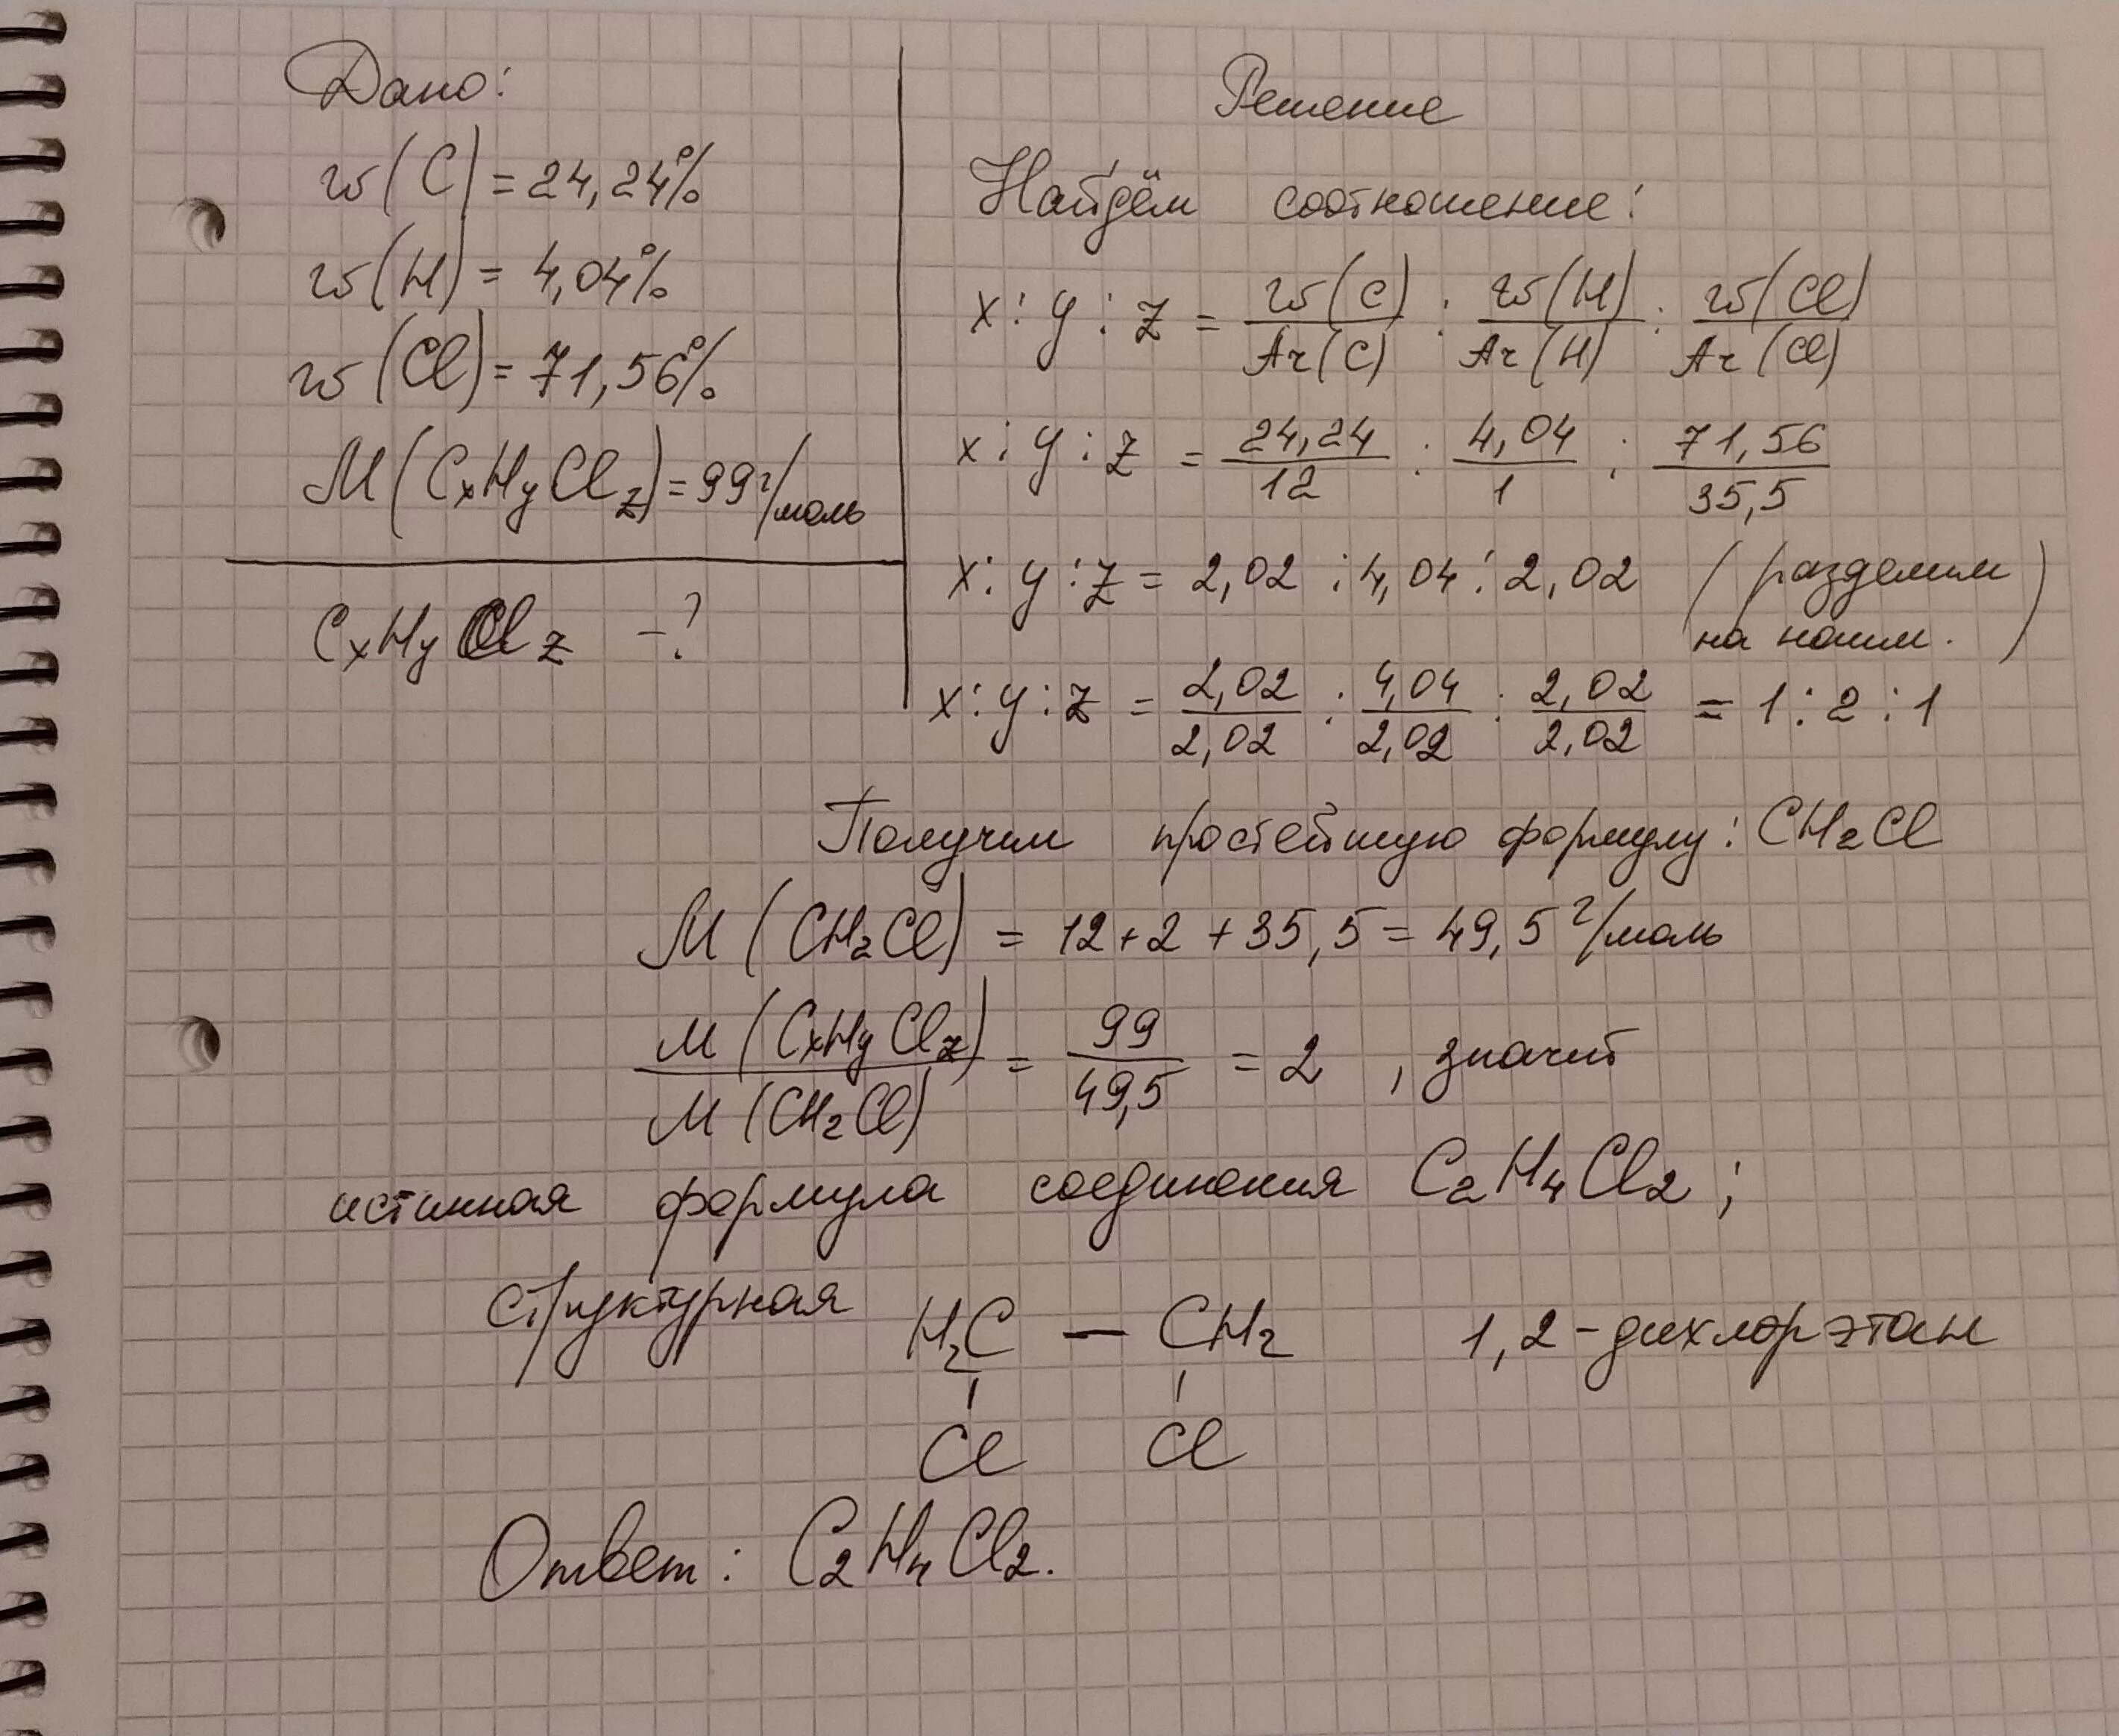 Дано:
w(C) = 24,24%
w(H) = 4,04%
w(Cl) = 71,56%
M(CxHyClz) = 99 г/моль
CxHyClz - ?
Решение
Найдём соотношение:
x : y : z = w(C)/Ar(C) : w(H)/Ar(H) : w(Cl)/Ar(Cl)
x : y : z = 24,24/12 : 4,04/1 : 71,56/35,5
x : y : z = 2,02 : 4,04 : 2,02 (разделим
на наим.)
x : y : z = 2,02/2,02 : 4,04/2,02 : 2,02/2,02 = 1 : 2 : 1
Получим простейшую формулу: CH₂Cl
M(CH₂Cl) = 12 + 2 + 35,5 = 49,5 г/моль
M(CxHyClz)/M(CH₂Cl) = 99/49,5 = 2, значит
истинная формула соединения C₂H₄Cl₂;
структурная H₂C — CH₂ 1,2-дихлорэтан
Cl Cl
Ответ: C₂H₄Cl₂.